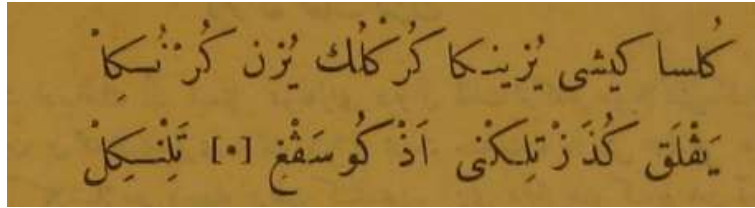 كُلسا كيشى يُزينكا كُرْكْلُك يُزن كُرْنُكِلْ
يَڤْلَق كُذَزْ تِلِكْنى اَذْكُو سَڤْغِ [٠] تَلِنْكِلْ